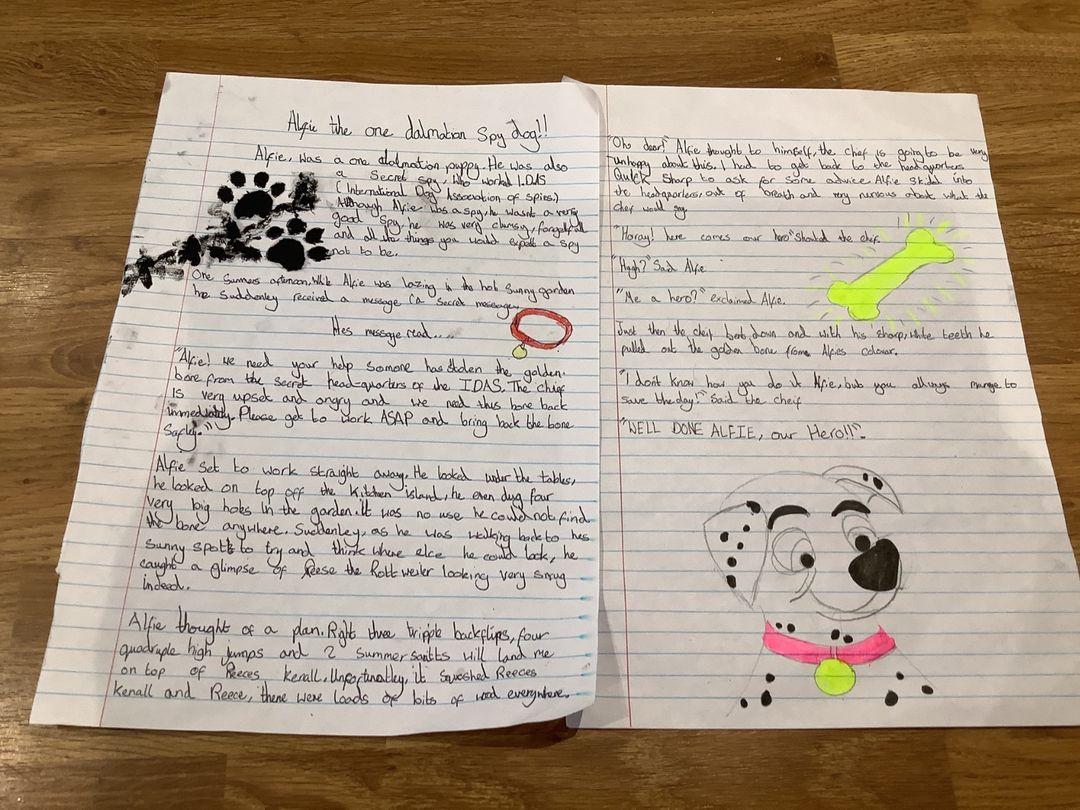 Alfie the one dalmation Spy dog!!
Alfie, was a one dalmation, puppy. He was also
a Secret spy, who worked I.D.AS
(International Dog Association of spies.)
Although Alfie was a spy, he wasnt a very
good Spy, he was very clumsy, forgetfull
and all the things you would expect a spy
not to be.
One Summers afternoon, While Alfie was lazing in the hot sunny garden
he Suddenley received a message (a Secret message).
Hes message read....
"Alfie! We need your help Someone has stolen the golden
bone from the Secret head-quarters of the IDAS. The chief
Is very upset and angry and we need this bone back
immediatly. Please get to work ASAP and bring back the bone
Safley."
Alfie set to work straight away. He looked under the tables,
he looked on top off the kitchen island, he even dug four
very big holes in the garden. It was no use he could not find
the bone anywhere. Suddenley, as he was walking back to hes
Sunny spott to try and think where elce he could look, he
caught a glimpse of Reese the Rottweiler looking very smug
indeed.
Alfie thought of a plan. Right three tripple backflips, four
quadruple high jumps and 2 Summersaults will land me
on top of Reeces kenall. Unfortunatley, it squashed Reeces
kenall and Reece, there were loads of bits of wood everywhere.
"Oho dear!" Alfie thought to himself, the chef is going to be very
unhappy about this. I had to get back to the headquarters
Quick Sharp to ask for some advice. Alfie skided into
the headquarters out of breath and very nervous about what the
chef would say
"Horay! here comes our hero" Shouted the chef.
"Hugh?" Said Alfie
"Me a hero?" exclaimed Alfie.
Just then the cheif bent down and with his sharp, white teeth he
pulled out the golden bone from Alfies colour.
"I don't know how you do it Alfie, but you allways manage to
save the day!" Said the cheif
"WELL DONE ALFIE, our Hero!!".